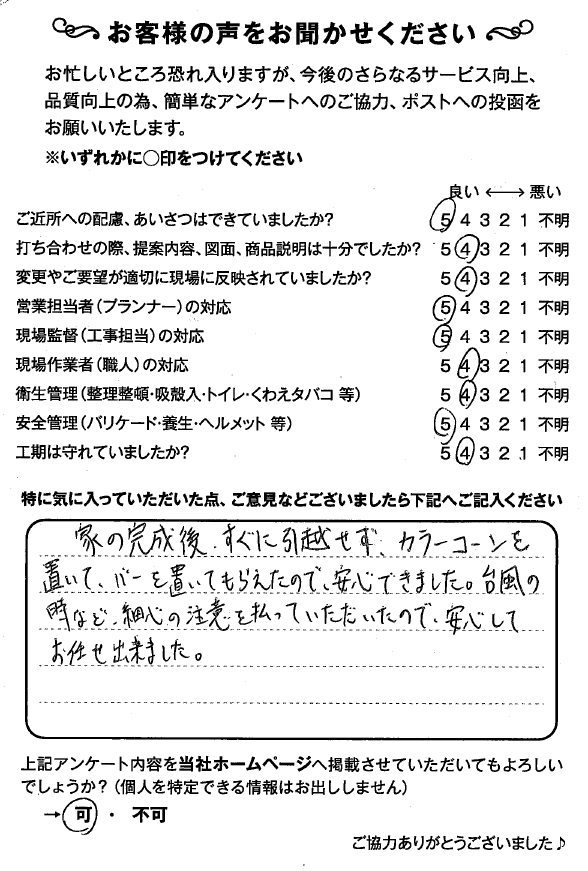 お客様の声をお聞かせください
お忙しいところ恐れ入りますが、今後のさらなるサービス向上、
品質向上の為、簡単なアンケートへのご協力、ポストへの投函を
お願いいたします。
※いずれかに〇印をつけてください
良い ←→ 悪い
ご近所への配慮、あいさつはできていましたか? 5 4 3 2 1 不明
打ち合わせの際、提案内容、図面、商品説明は十分でしたか? 5 4 3 2 1 不明
変更やご要望が適切に現場に反映されていましたか? 5 4 3 2 1 不明
営業担当者(プランナー)の対応 5 4 3 2 1 不明
現場監督(工事担当)の対応 5 4 3 2 1 不明
現場作業者(職人)の対応 5 4 3 2 1 不明
衛生管理(整理整頓・吸殻入・トイレ・くわえタバコ 等) 5 4 3 2 1 不明
安全管理(バリケード・養生・ヘルメット 等) 5 4 3 2 1 不明
工期は守れていましたか? 5 4 3 2 1 不明
特に気に入っていただいた点、ご意見などございましたら下記へご記入ください
家の完成後、すぐに引越せず、カラーコーンを
置いて、バーを置いてもらえたので、安心できました。台風の
時など、細心の注意を払っていただいたので、安心して
お任せ出来ました。
上記アンケート内容を当社ホームページへ掲載させていただいてもよろしい
でしょうか?(個人を特定できる情報はお出ししません)
→ 可 ・ 不可
ご協力ありがとうございました♪